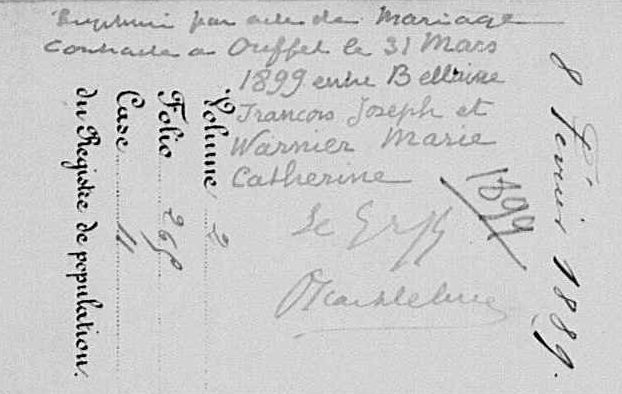 par acte de Mariage
contracté a Ouffet le 31 Mars
1899 entre Bellaire
Francois Joseph et
Warnier Marie
Catherine
1899
Le Greff
8 Fevrier 1889.
Volume 2
Folio
Case 11
du Registre de population.